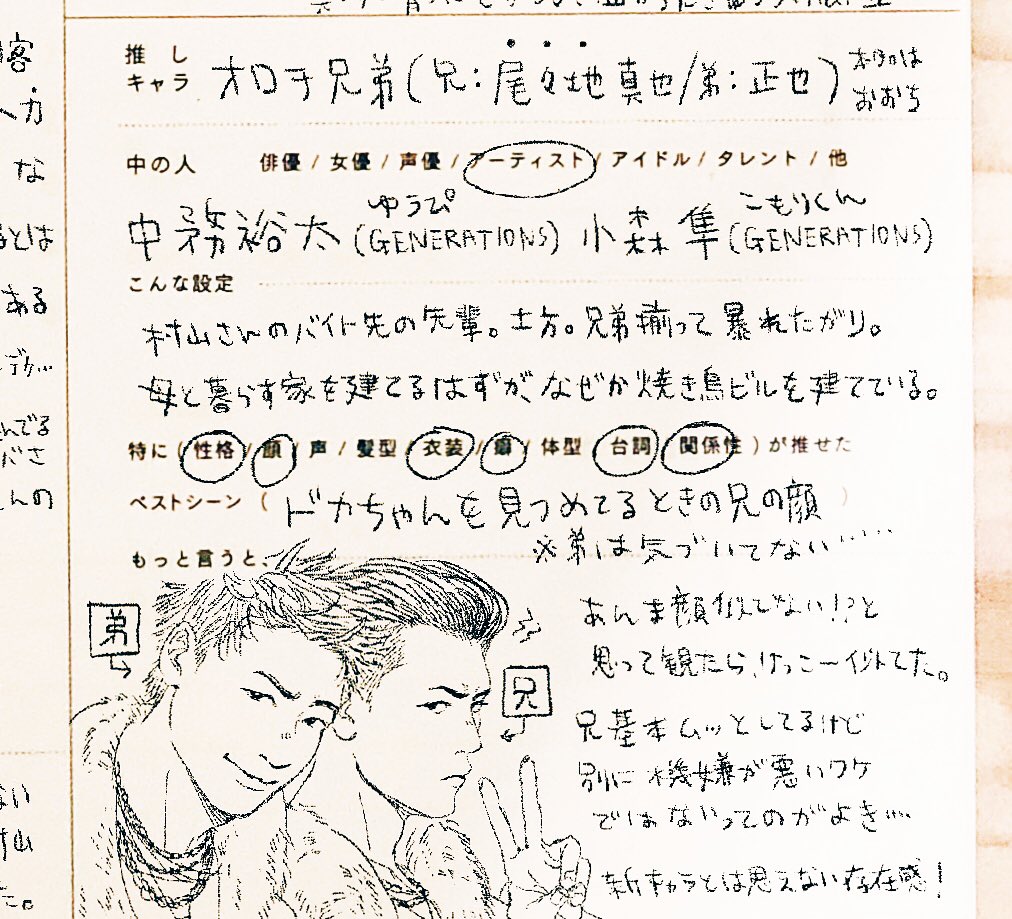 推し
キャラ
オロチ兄弟(兄:尾々地真也/弟:正也)
本名は
おおち
中の人 俳優 / 女優 / 声優 / アーティスト / アイドル / タレント / 他
ゆうぴ こもりくん
中務裕太(GENERATIONS) 小森隼(GENERATIONS)
こんな設定
村山さんのバイト先の先輩。土方。兄弟揃って暴れたがり。
母と暮らす家を建てるはずが、なぜか焼き鳥ビルを建てている。
特に ( 性格 / 顔 / 声 / 髪型 / 衣装 / 癖 / 体型 / 台詞 / 関係性 ) が推せた
ベストシーン ( ドカちゃんを見つめてるときの兄の顔 )
※弟は気づいてない……
もっと言うと、
弟
兄
あんま顔似てない!?と
思って観たら、けっこー似てた。
兄基本ムッとしてるけど
別に機嫌が悪いワケ
ではないってのがよき…
新キャラとは思えない存在感!
客
へ方
な
るとは
ある
デケ…
んでる
バさ
んの
ない
村山
た。